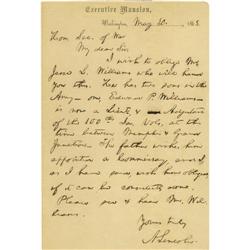 Executive Mansion,
Washington, May 20, 1863.
Hon. Sec. of War
My dear Sir
I wish to oblige Mr.
James L. Williams who will hand
you this. He has two sons in the
Army— one Edwin P. Williams
is now a Lieut. & Adjutant
of the 100th Ind. Vols. at this
time between Memphis & Grand
Junction. The father wishes him
appointed a Commissary, and I,
as I have said, wish him obliged
if it can be consistently done.
Please see & hear Mr. Wil-
liams.
Yours truly
A. Lincoln